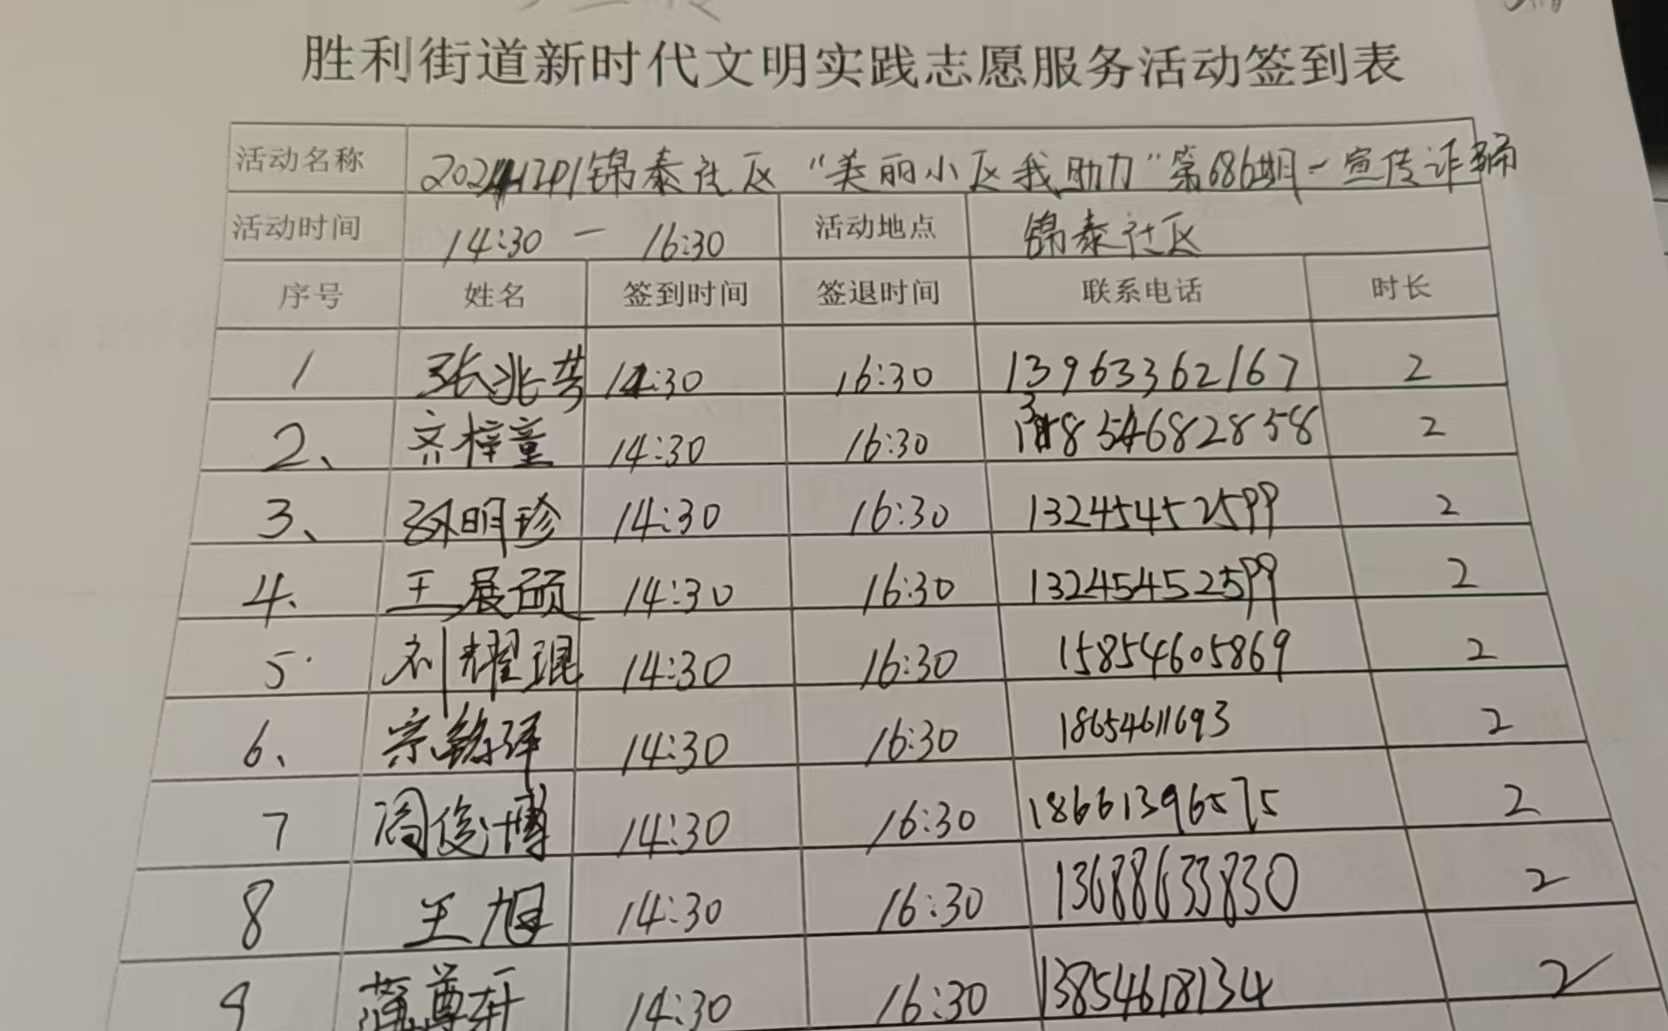 胜利街道新时代文明实践志愿服务活动签到表
活动名称 20241201锦泰社区“美丽小区我助力”第686期-宣传诈骗
活动时间 14:30 — 16:30 活动地点 锦泰社区
序号 姓名 签到时间 签退时间 联系电话 时长
1 张兆芳 14:30 16:30 13963362167 2
2、 齐梓童 14:30 16:30 13854682858 2
3、 孙明珍 14:30 16:30 13245452599 2
4. 王展硕 14:30 16:30 13245452599 2
5. 刘耀琨 14:30 16:30 15854605869 2
6、 宗铭泽 14:30 16:30 18654611693 2
7 阎俊博 14:30 16:30 18661396575 2
8 王旭 14:30 16:30 13688633830 2
9 尊轩 14:30 16:30 13854618134 2